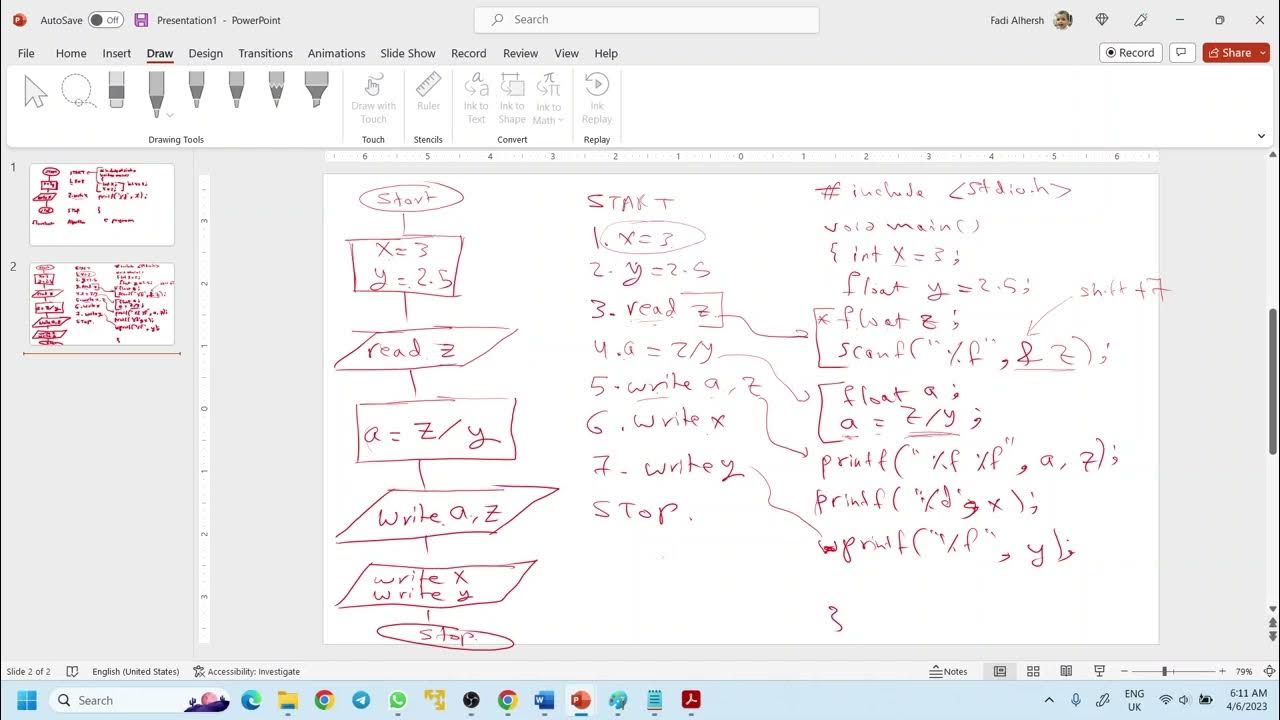 AutoSave Off Presentation1 - PowerPoint Search Fadi Alhersh
File Home Insert Draw Design Transitions Animations Slide Show Record Review View Help Record Share
Draw with Touch Ruler Ink to Text Ink to Shape Ink to Math Ink Replay
Drawing Tools Touch Stencils Convert Replay
6 5 4 3 2 1 0 1 2 3 4 5 6
1
2
3 2 1 0 1 2 3
Start
x=3
y=2.5
read z
a = z/y
write a, z
write x
write y
Stop.
START
1. x=3
2. y=2.5
3. read z
4. a = z/y
5. write a, z
6. write x
7. write y
STOP.
# include <stdio.h>
void main()
{ int x = 3;
float y = 2.5;
shift + 7
* float z;
scanf("%f", & z);
float a;
a = z/y;
printf("%f %f", a, z);
printf("%d", x);
printf("%f", y);
}
Slide 2 of 2 English (United States) Accessibility: Investigate Notes 79%
Search ENG UK 6:11 AM 4/6/2023